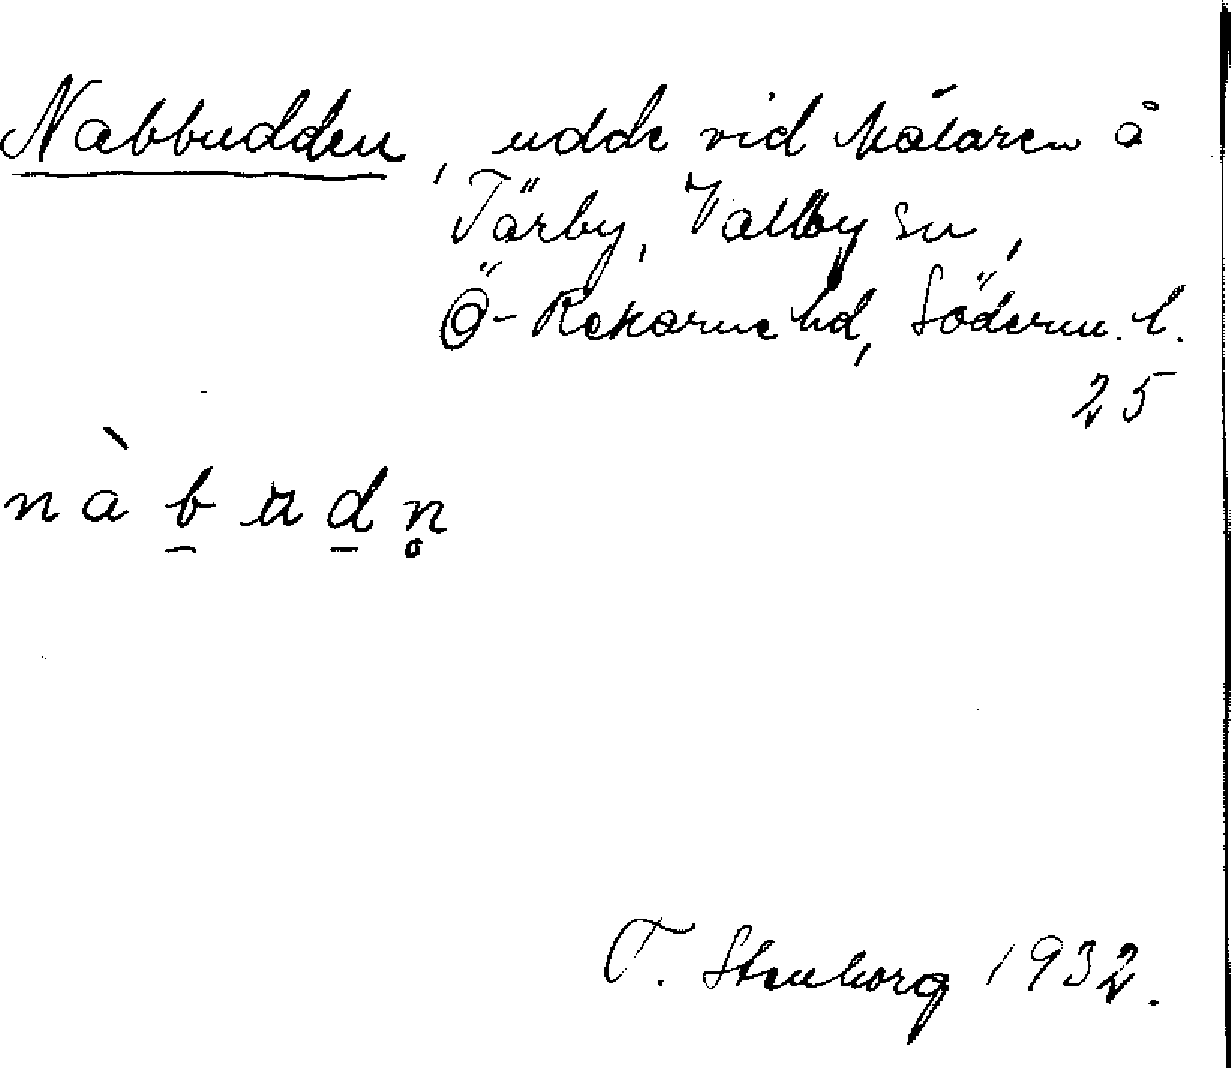 Nabbudden, udde vid Mälaren å
Tärby, Vallby sn,
Ö-Rekarne hd, Söderm. l.
25
nàb̠ud̠n̥
T. Stenborg 1932.